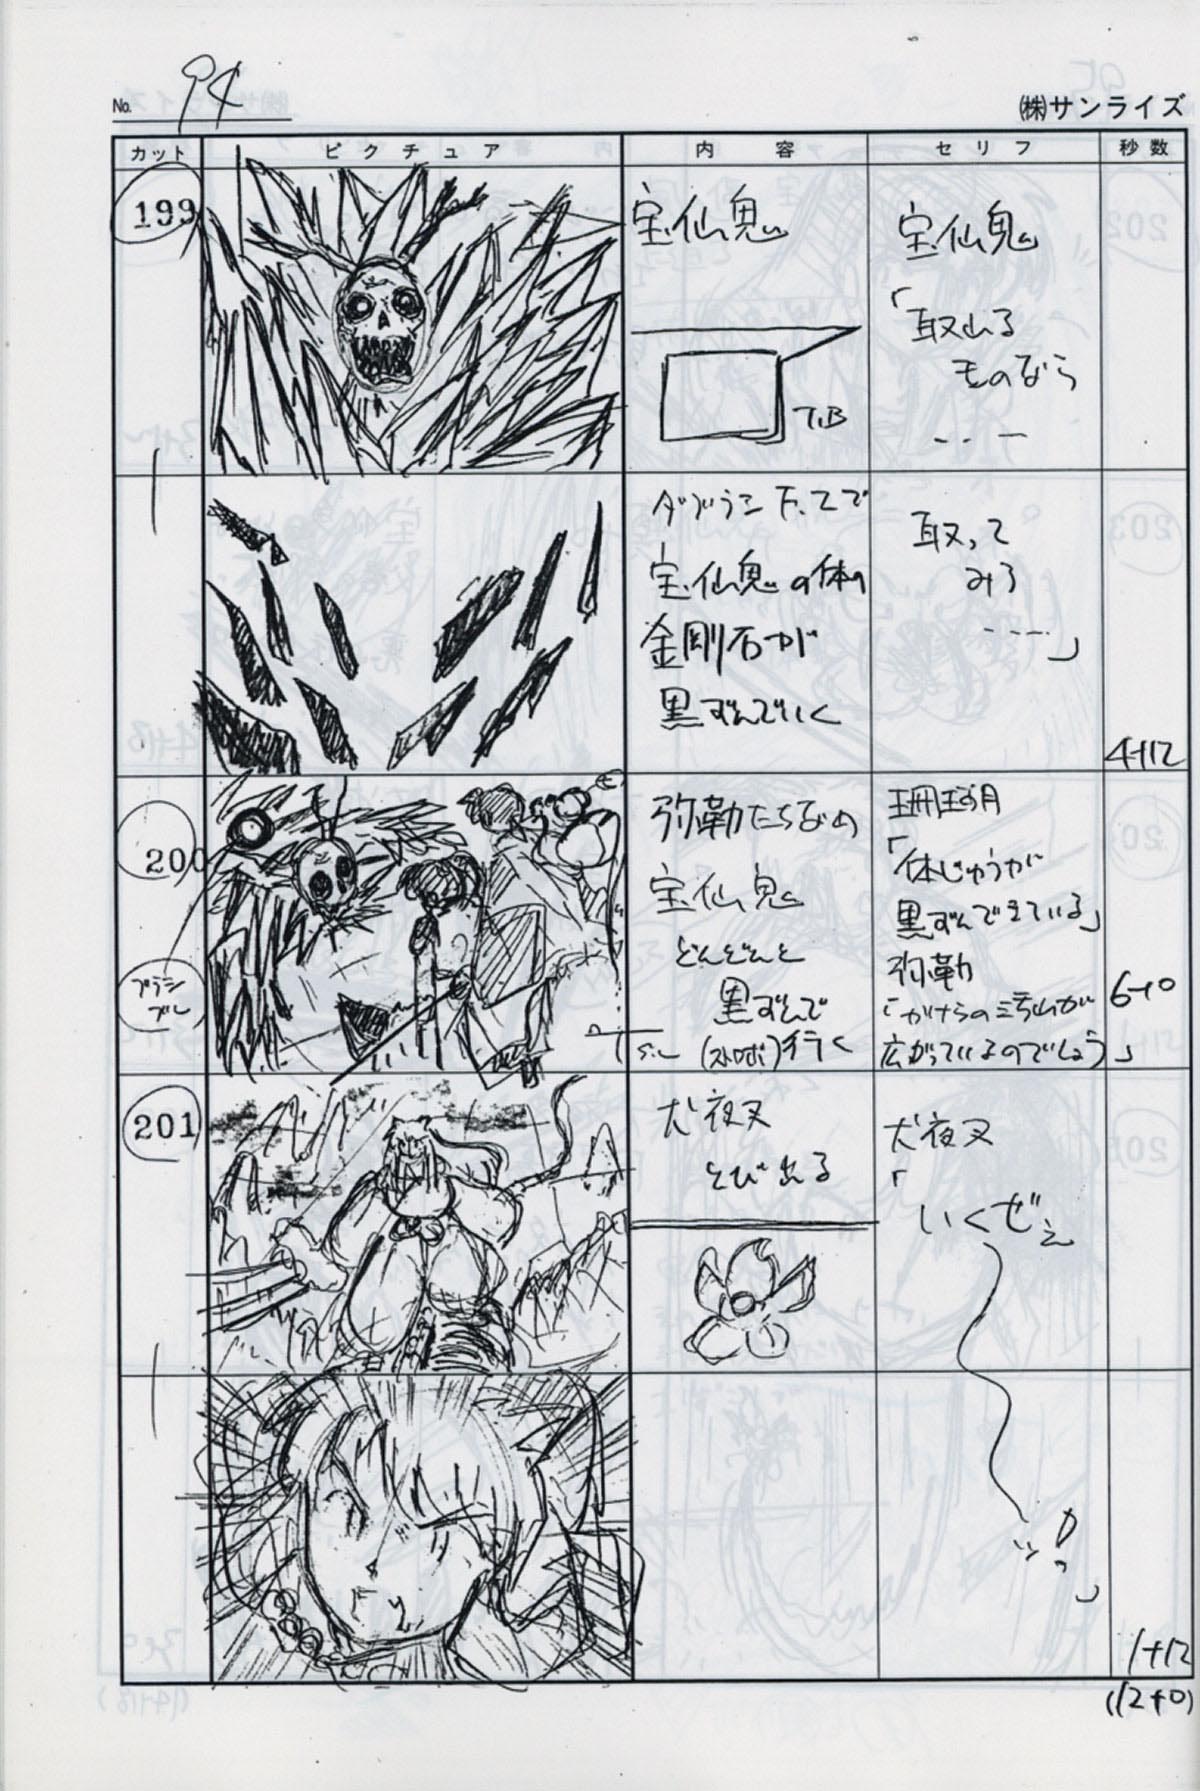 No. 94
㈱サンライズ
カット ピクチュア 内容 セリフ 秒数
199
宝仙鬼
T.B
宝仙鬼
「取れる
ものなら
---
ダブラシ
宝仙鬼の体の
金剛石が
黒ずんでいく
取って
みろ
----」
4+12
200
ブラシ
ブレ
弥勒たちなめ
宝仙鬼
どんどんと
黒ずんで
(ストロボ)行く
珊瑚
「体じゅうが
黒ずんできている」
弥勒
「かけらの汚れが
広がっているのでしょう」
6+0
201
犬夜叉
とび出る
犬夜叉
「
いくぜえ
ッ。」
1+12
(12+0)